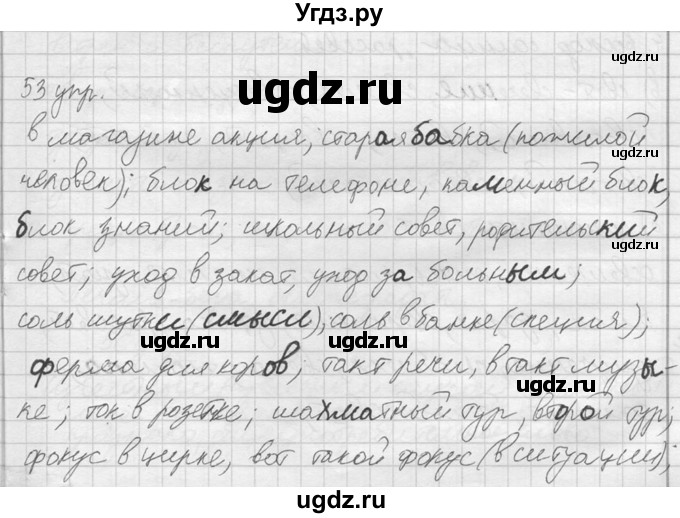 Угдз.ру
53 упр.
ugdz.ru ugdz.ru
в магазине акция; старая бабка (пожилой
ugdz.ru
человек); блок на телефоне, каменный блок,
ugdz.ru
блок знаний; школьный совет, родительский
ugdz.ru
совет; уход в закат, уход за больным;
соль шутки (смысл), соль в банке (специя);
ugdz.ru ugdz.ru
ферма для коров; такт речи, в такт музы-
ugdz.ru
ке; ток в розетке; шахматный тур, второй тур;
фокус в цирке, вот такой фокус (в ситуации);
ugdz.ru